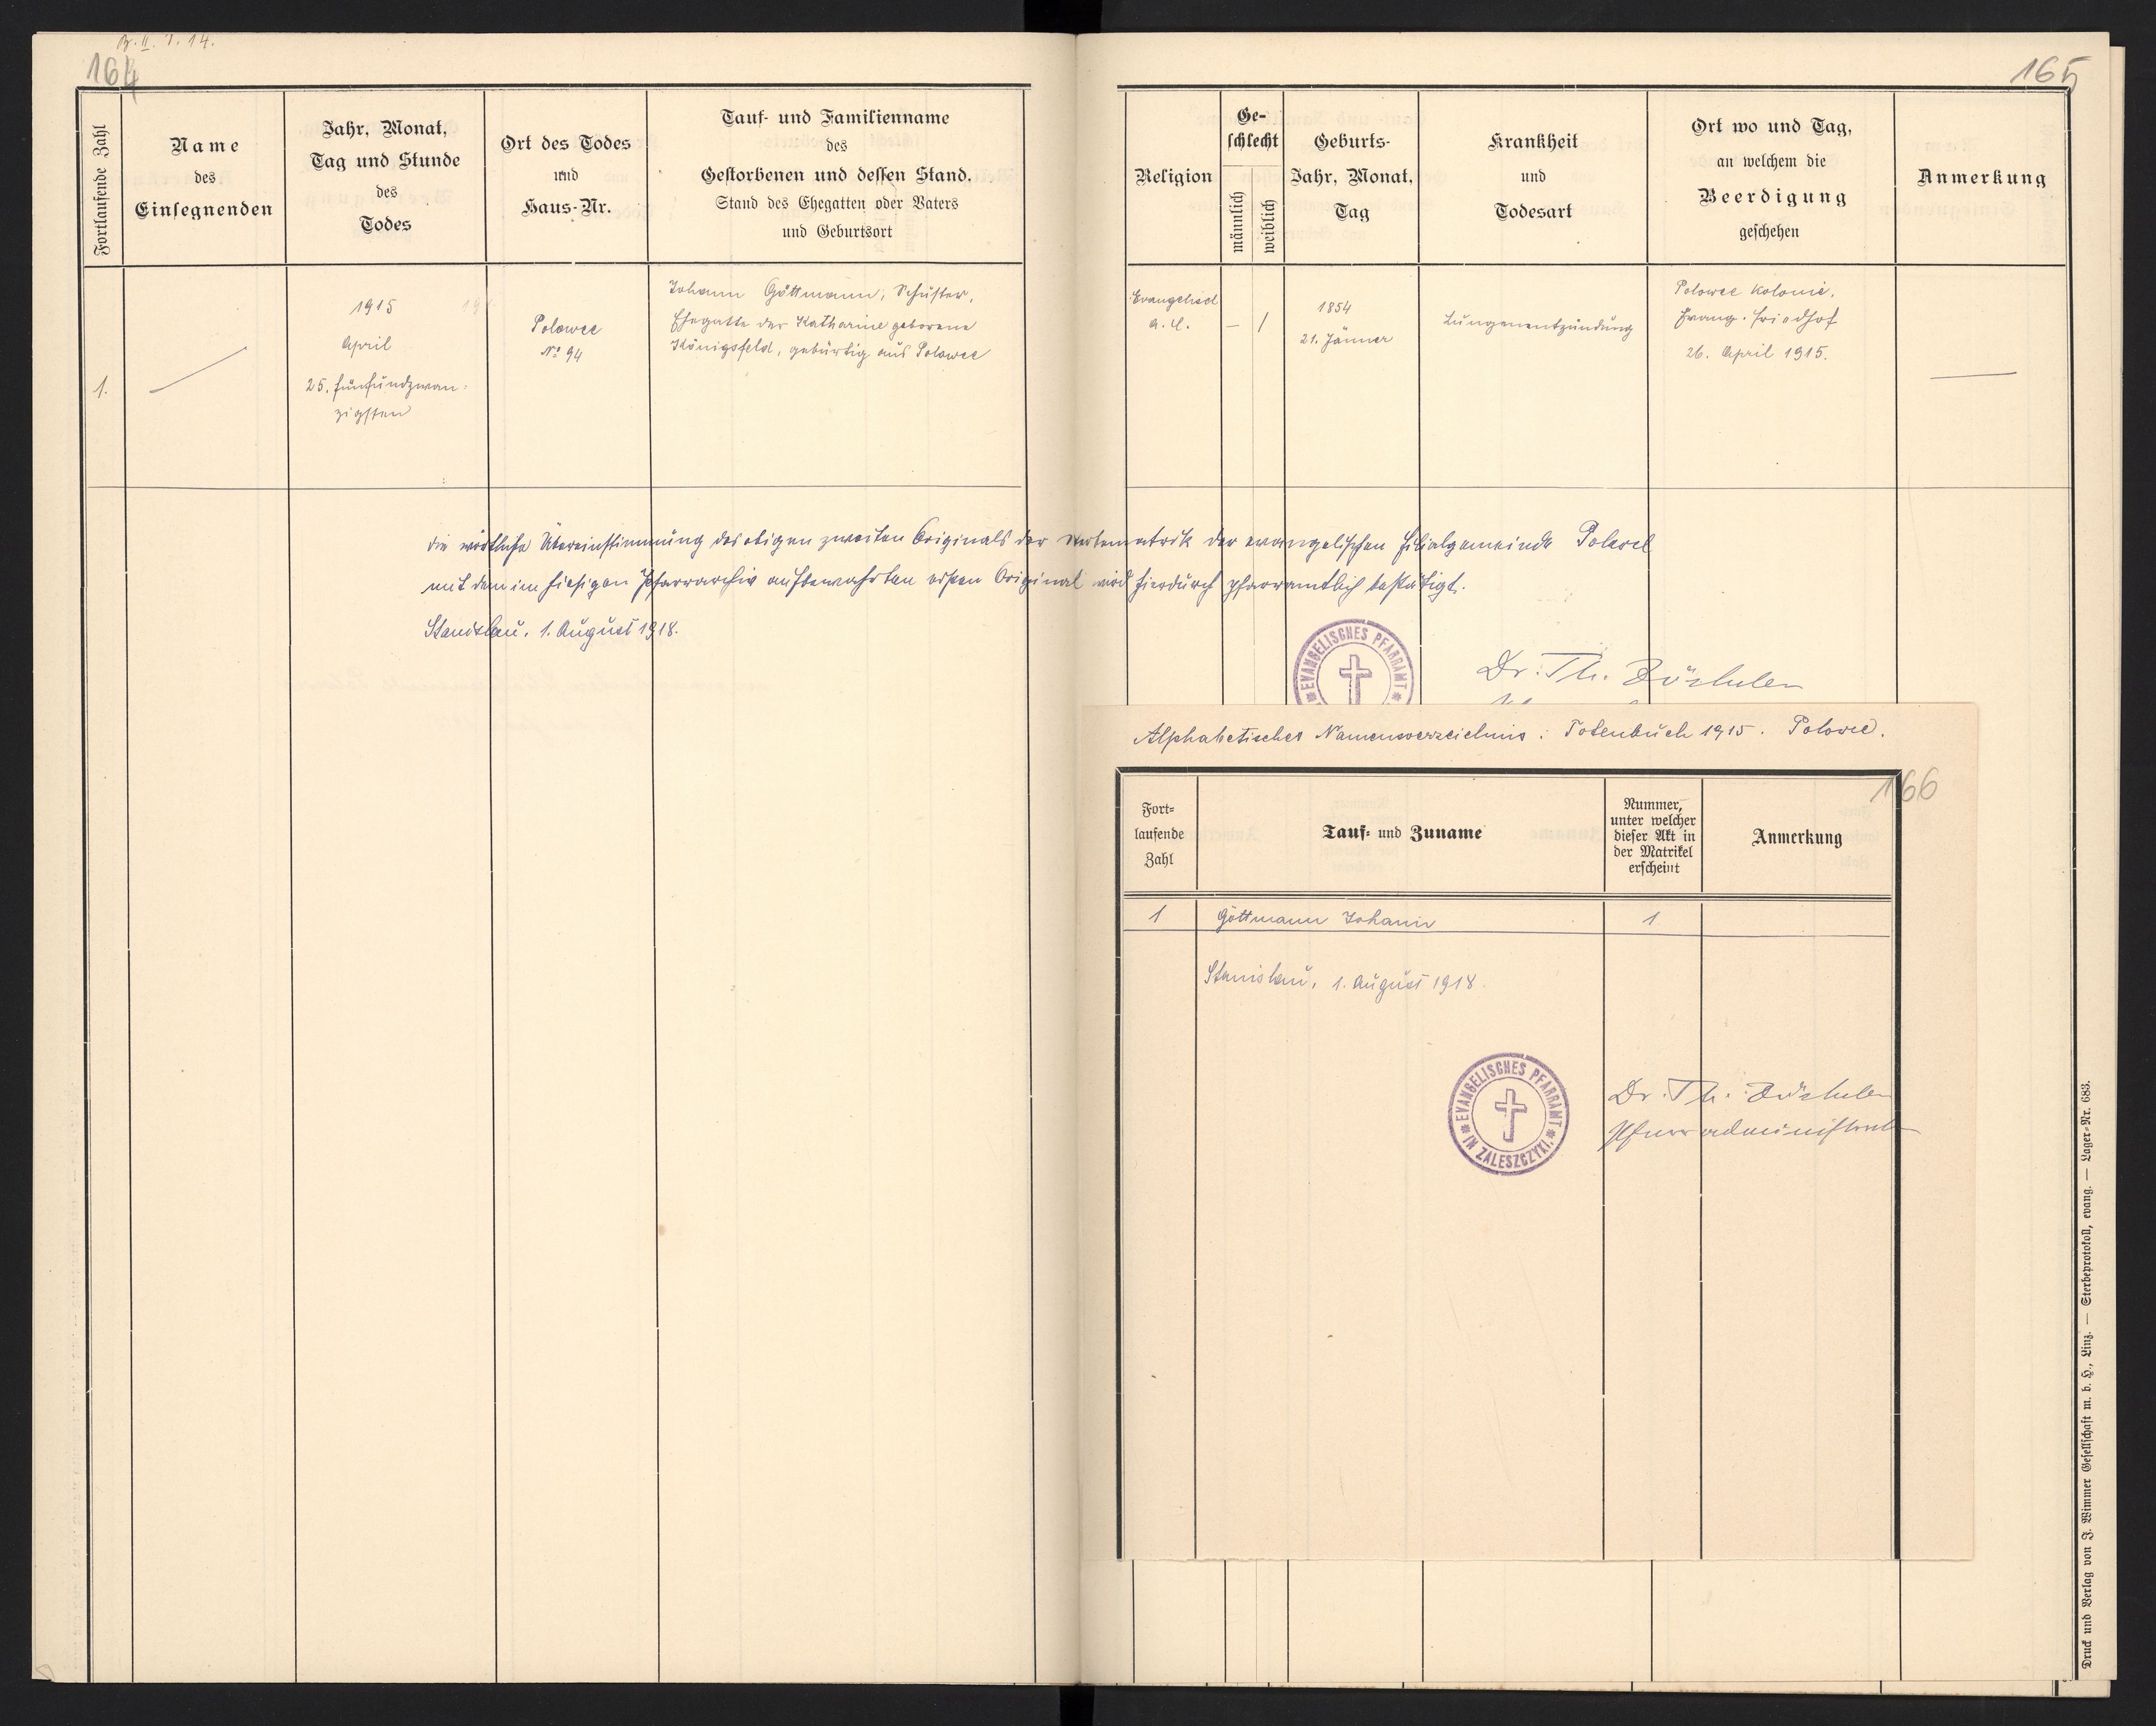 B. II. 7. 14.
164
Fortlaufende Zahl
Name
des
Einsegnenden
Jahr, Monat,
Tag und Stunde
des
Todes
Ort des Todes
und
Haus-Nr.
Tauf- und Familienname
des
Gestorbenen und dessen Stand,
Stand des Ehegatten oder Vaters
und Geburtsort
1.
1915
April
25. fünfundzwan-
zigsten
Polowce
No 94
Johann Göttmann, Schuster,
Ehegatte der Katharine geborene
Königsfeld, gebürtig aus Polowce
165
Religion
Ge-
schlecht
männlich
weiblich
Geburts-
Jahr, Monat,
Tag
Krankheit
und
Todesart
Ort wo und Tag,
an welchem die
Beerdigung
geschehen
Anmerkung
Evangelisch
A. C.
— 1
1854
21. Jänner
Lungenentzündung
Polowce Kolonie,
Evang. Friedhof
26. April 1915.
die wörtliche Übereinstimmung des obigen zweiten Originals der Sterbematrik der evangelischen Filialgemeinde Polowce
mit dem im hiesigen Pfarrarchiv aufbewahrten ersten Original wird hierdurch pfarramtlich bestätigt.
Stanislau, 1. August 1918.
EVANGELISCHES PFARRAMT
Dr. Th. Zöckler
Alphabetisches Namensverzeichnis: Totenbuch 1915. Polowce.
166
Fort-
laufende
Zahl
Tauf- und Zuname
Nummer,
unter welcher
dieser Akt in
der Matrikel
erscheint
Anmerkung
1 Göttmann Johann 1
Stanislau, 1. August 1918.
EVANGELISCHES PFARRAMT IN ZALESZCZYKI.
Dr. Th. Zöckler
Pfarradministrator
Druck und Verlag von J. Wimmer Gesellschaft m. b. H., Linz. — Sterbeprotokoll, evang. — Lager-Nr. 683.